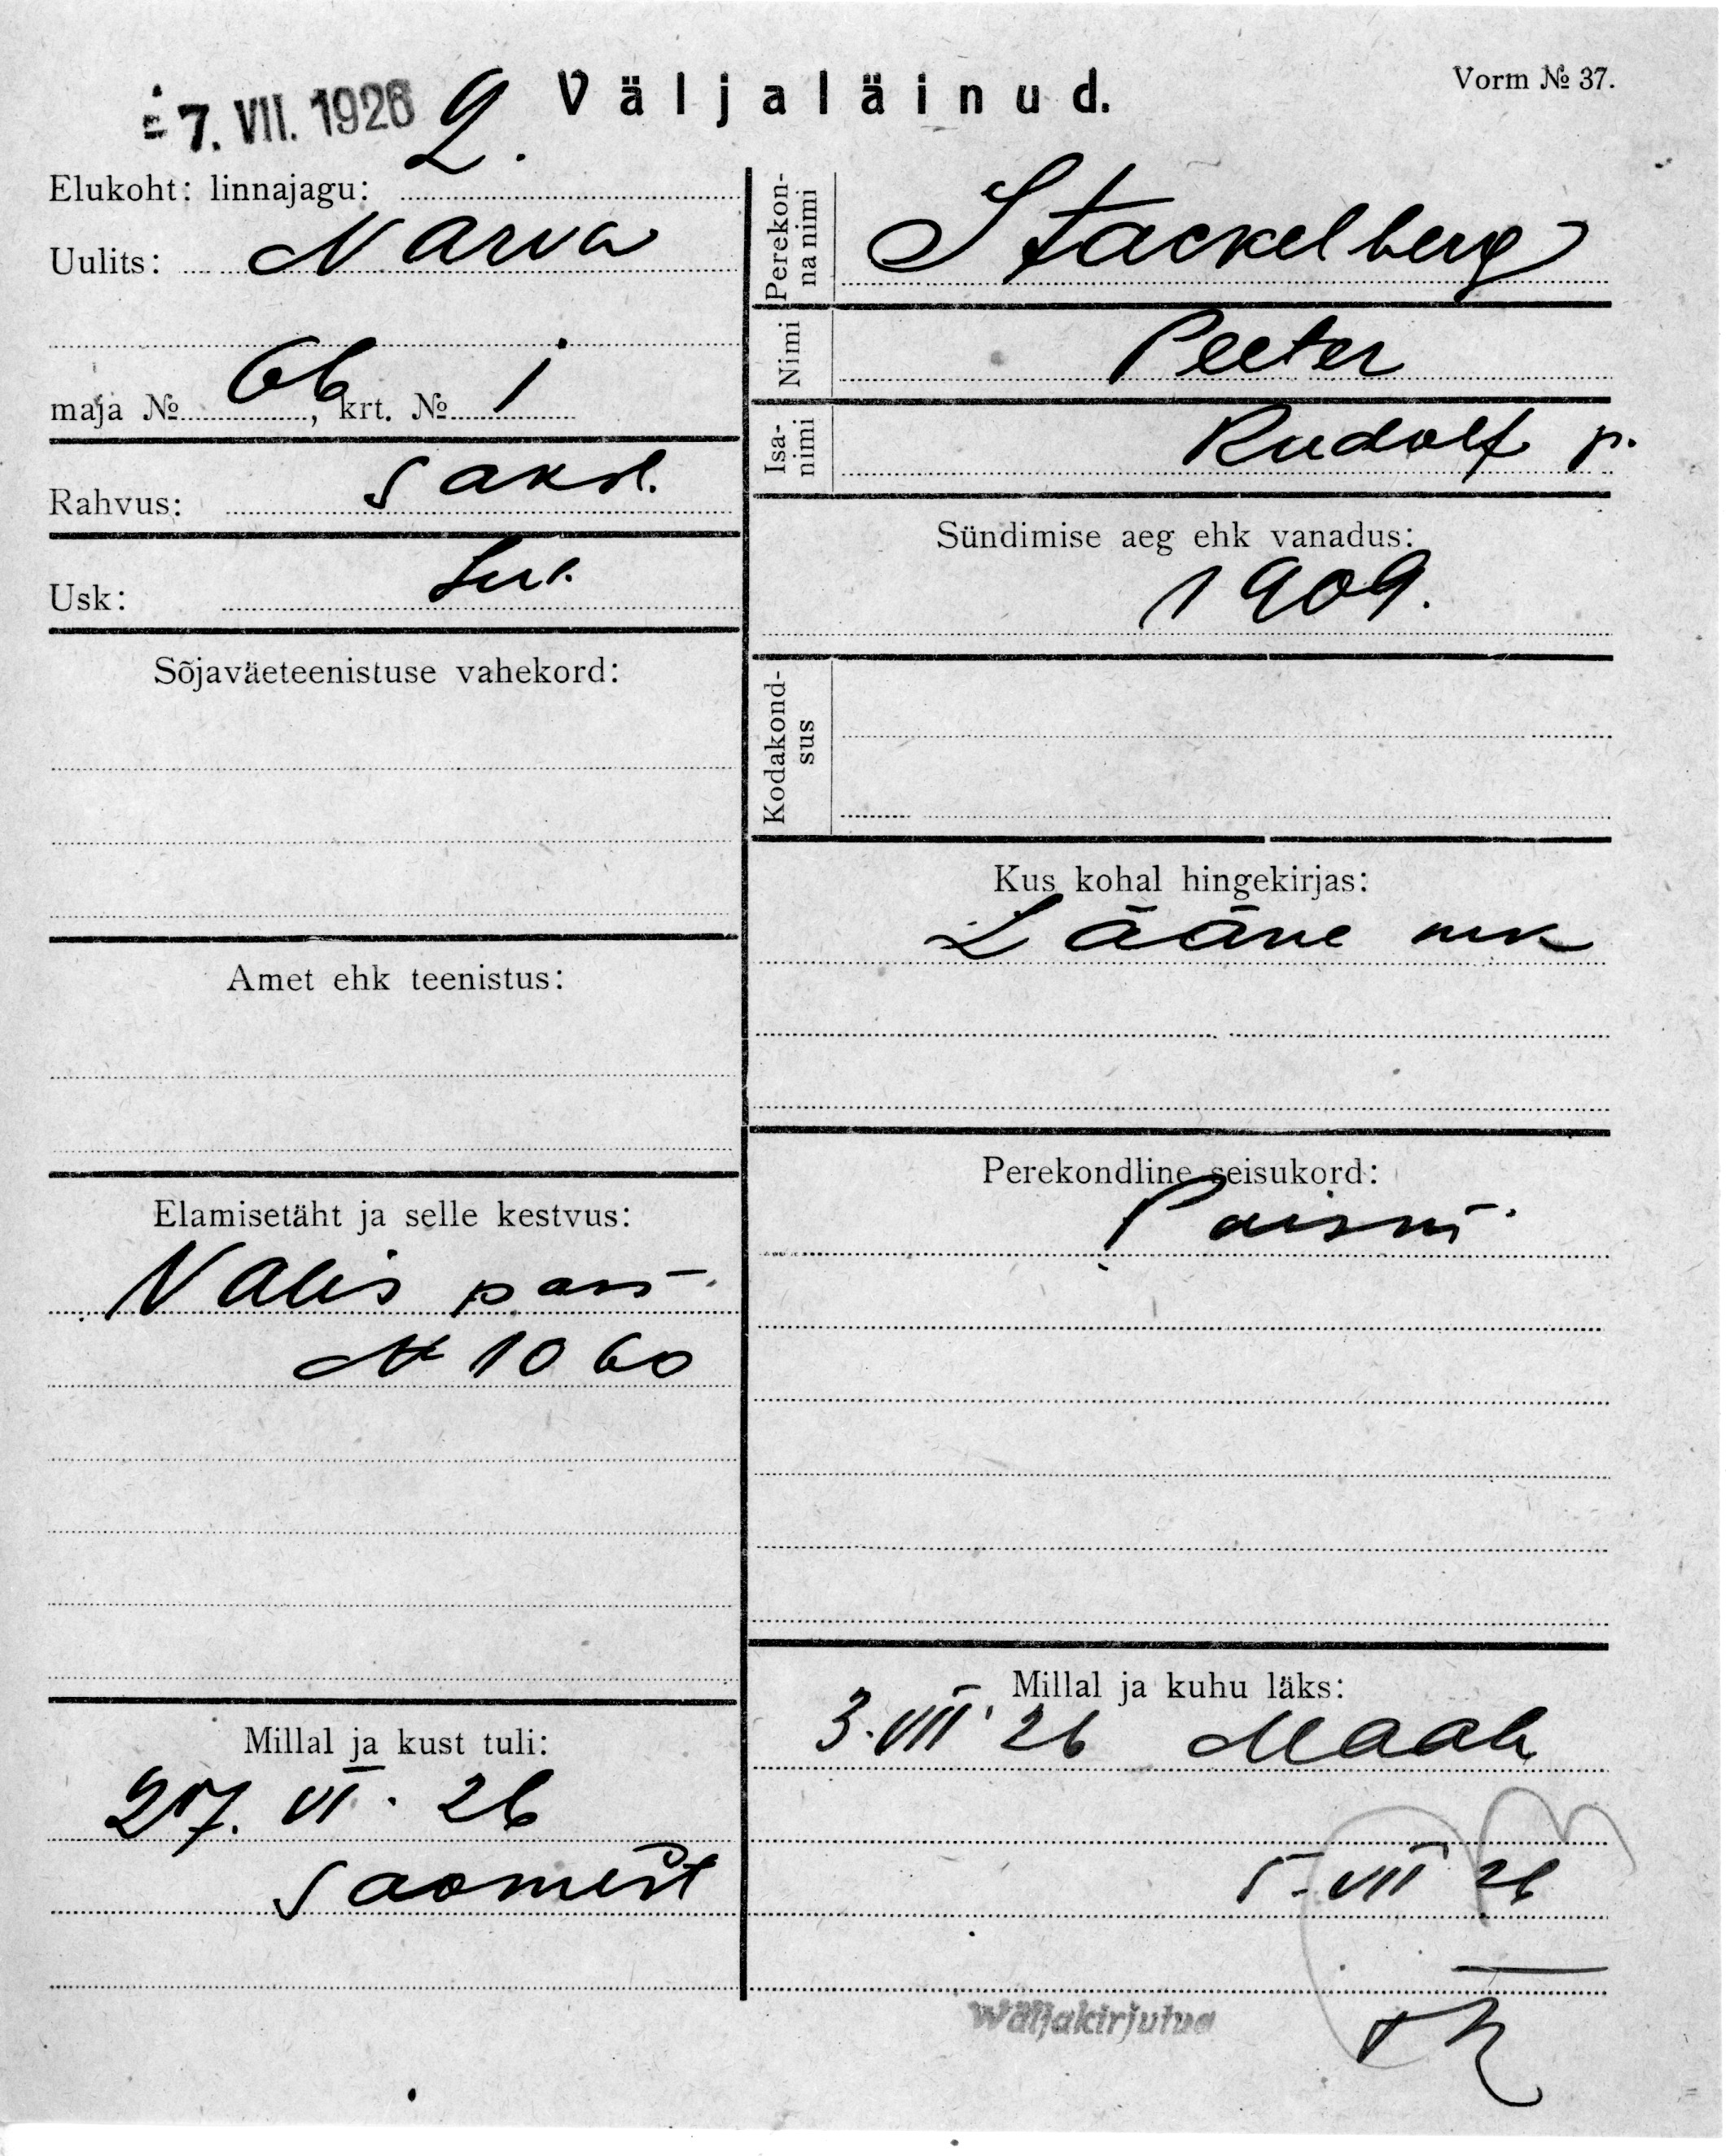 - 7. VII. 1926
Väljaläinud.
Vorm № 37.
Elukoht: linnajagu: 2.
Uulits: Narva
maja № 6b, krt. № 1
Rahvus: saksl.
Usk: Lut.
Sõjaväeteenistuse vahekord:
Amet ehk teenistus:
Elamisetäht ja selle kestvus:
Välis pass
№ 1060
Millal ja kust tuli:
27. VI. 26
Soomest
Perekon-
na nimi
Stackelberg
Nimi Peeter
Isa-
nimi
Rudolf p.
Sündimise aeg ehk vanadus:
1909.
Kodakond-
sus
Kus kohal hingekirjas:
Lääne mk
Perekondline seisukord:
Poissm.
Millal ja kuhu läks:
3. VII 26 Maale
5. VII 26
Wäljakirjutud